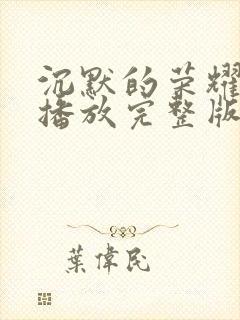 沉默的荣耀
播放完整版
葉偉民